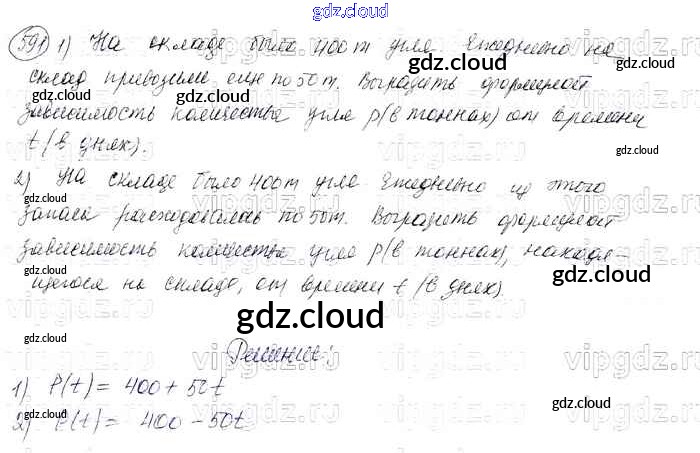 gdz.cloud
591 1) На складе было 400т угля. Ежедневно на
склад привозили еще по 50т. Выразить формулой
зависимость количества угля p(в тоннах) от времени
t (в днях).
2) На складе было 400т угля. Ежедневно из этого
запаса расходовалось по 50т. Выразить формулой
зависимость количества угля p(в тоннах), находя-
щегося на складе, от времени t (в днях).
gdz.cloud
Решение:
1) P(t) = 400 + 50t
2) P(t) = 400 - 50t
gdz.cloud
vipgdz.ru